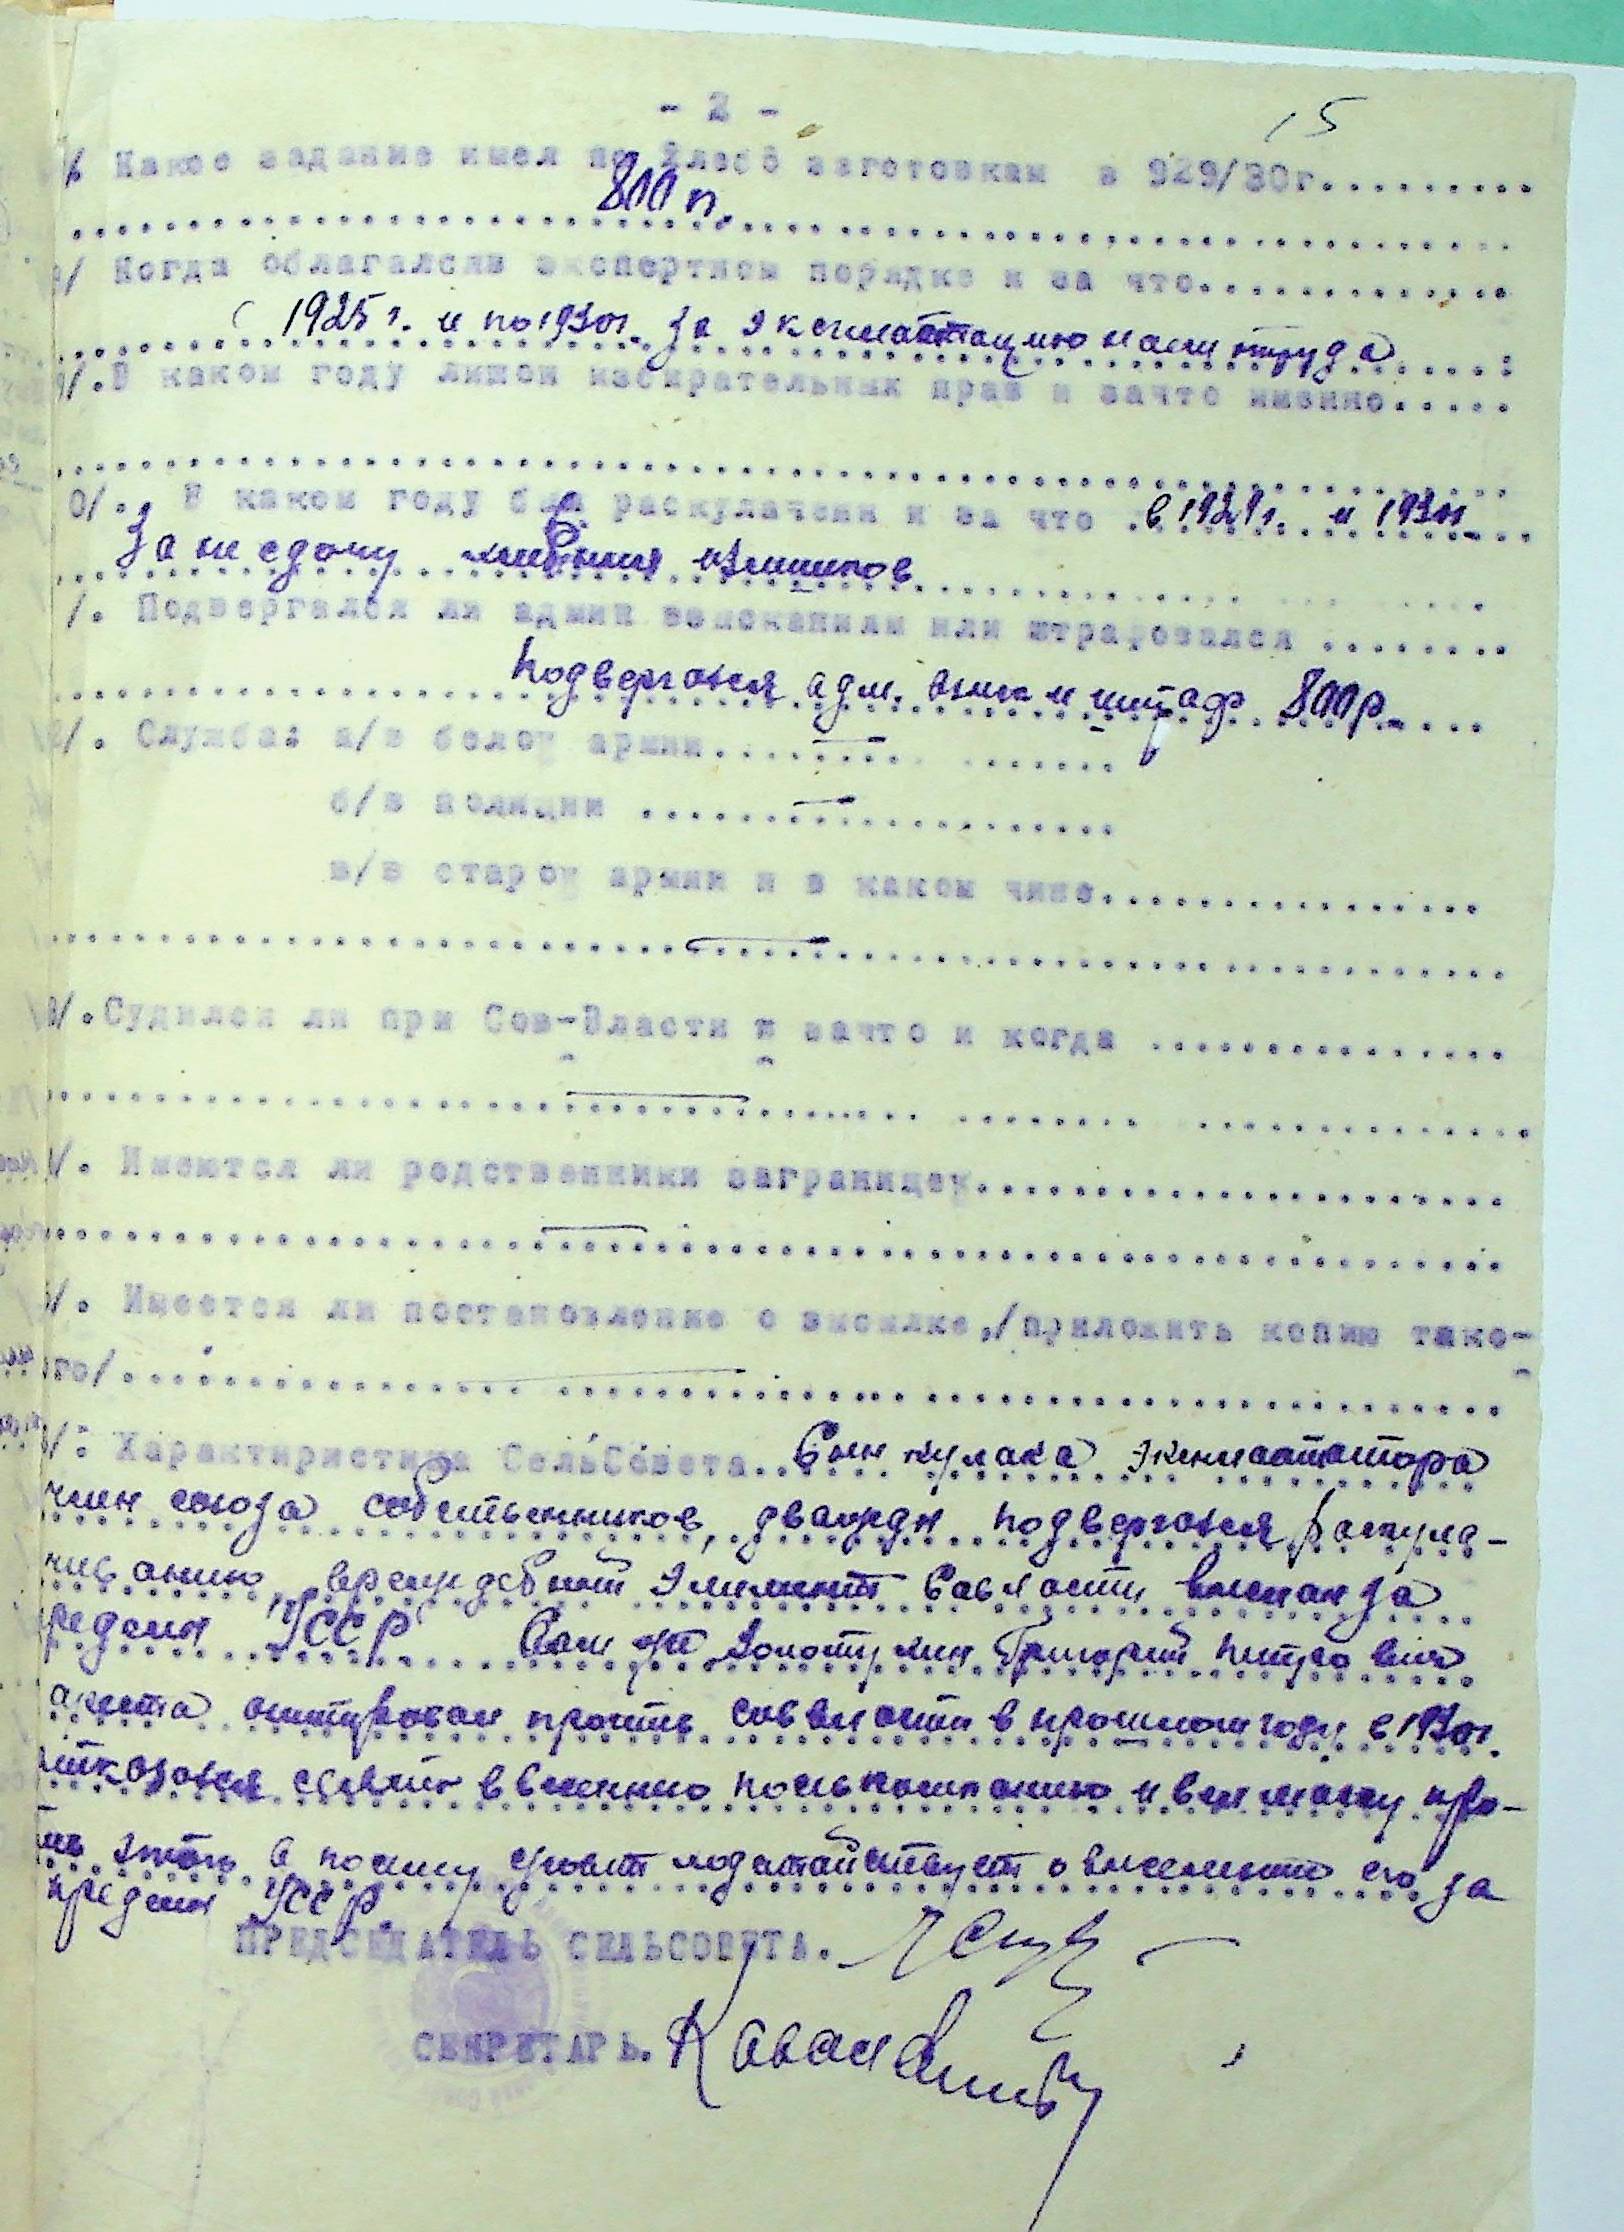 - 2 -
15
/ Какое задание имел по хлебо заготовкам в 929/30г.
800 п.
/ Когда облагался экспертном порядке и за что
1925 г. и по 1930г. за эксплоатацию наем труда
/. В каком году лишен избирательных прав и зачто именно
0/. В каком году был раскулачен и за что в 1929 г. и 1930г
За не сдачу хлебных излишков
/. Подвергался ли админ взысканиям или штрафовался
Подвергался адм. взыск и штраф 800 р.
/. Служба: а/в белой армии
б/в полиции
в/в старой армии и в каком чине
/. Судился ли при Сов-Власти и зачто и когда
/. Имеются ли родственники заграницей
/. Имеется ли постановление о высылке,/приложить копию тако-
го/
/: Характиристика СельСовета. Сын кулака эксплоататора
член союза собственников, дважды подвергался раскула-
чиванию, враждебный элемент Совласти выслан за
пределы УССР Сам же Золотухин Григорий
агитировал против соввласти в прошлом году в 1930г.
и
этого а посему сховет ходатайствует о выселении его за
пределы УССР.
ПРЕДСЕДАТЕЛЬ СЕЛЬСОВЕТА.
СЕКРЕТАРЬ.